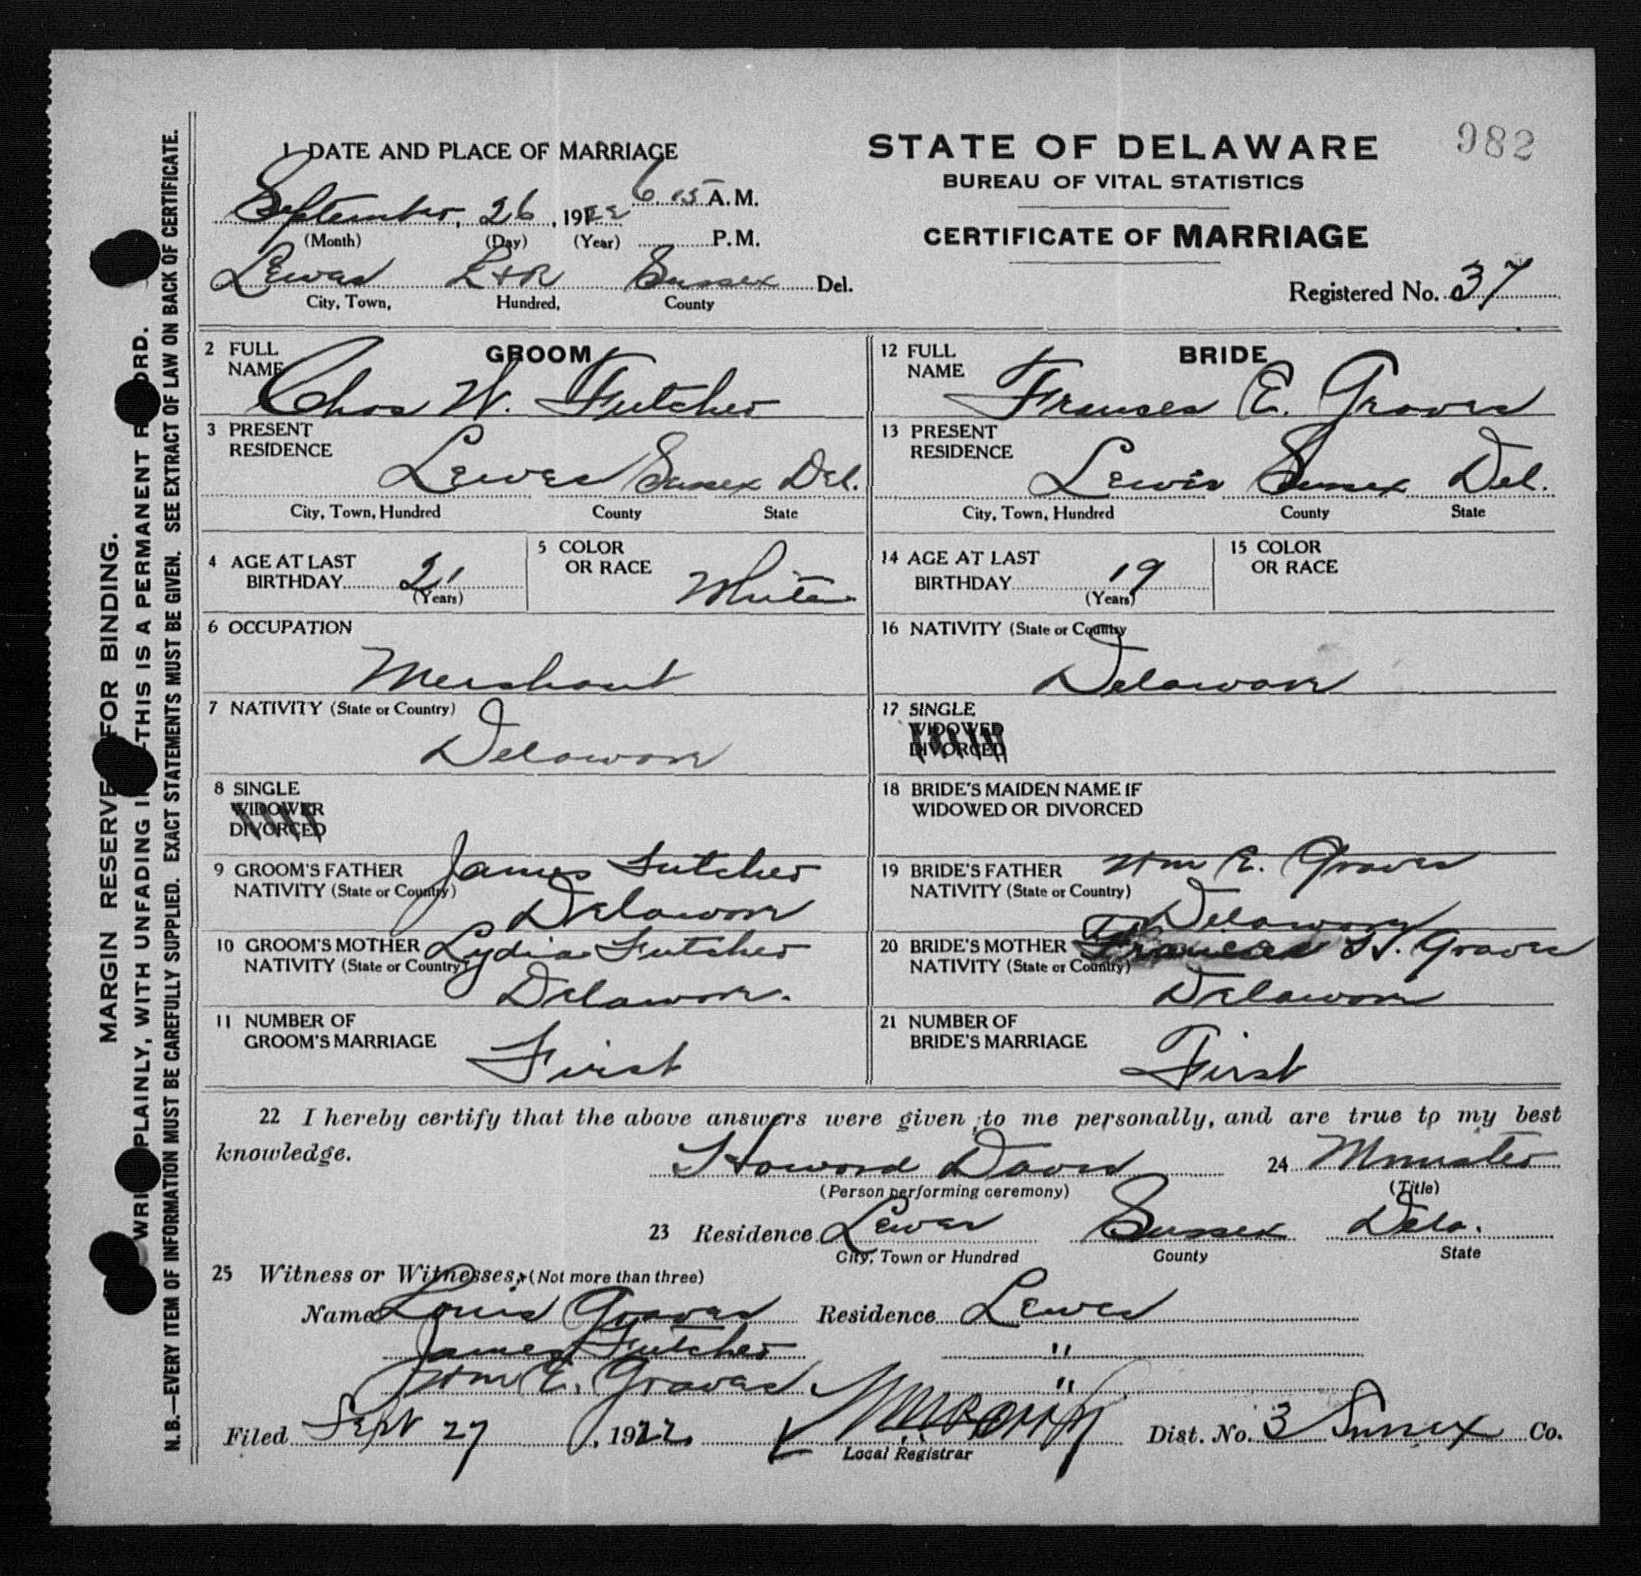 982
STATE OF DELAWARE
BUREAU OF VITAL STATISTICS
CERTIFICATE OF MARRIAGE
Registered No. 37
1 DATE AND PLACE OF MARRIAGE
September, 26, 1922 6 15 A.M.
(Month) (Day) (Year) P.M.
Lewes L+R Sussex Del.
City, Town, Hundred, County
GROOM
2 FULL NAME
Chas W. Futcher
3 PRESENT RESIDENCE
Lewes Sussex Del.
City, Town, Hundred County State
4 AGE AT LAST BIRTHDAY 21
(Years)
5 COLOR OR RACE White
6 OCCUPATION
Merchant
7 NATIVITY (State or Country)
Delaware
8 SINGLE
WIDOWER
DIVORCED
9 GROOM'S FATHER James Futcher
NATIVITY (State or Country) Delaware
10 GROOM'S MOTHER Lydia Futcher
NATIVITY (State or Country) Delaware.
11 NUMBER OF GROOM'S MARRIAGE First
BRIDE
12 FULL NAME
Franses E. Graves
13 PRESENT RESIDENCE
Lewes Sussex Del.
City, Town, Hundred County State
14 AGE AT LAST BIRTHDAY 19
(Years)
15 COLOR OR RACE
16 NATIVITY (State or Country
Delaware
17 SINGLE
WIDOWED
DIVORCED
18 BRIDE'S MAIDEN NAME IF WIDOWED OR DIVORCED
19 BRIDE'S FATHER Wm E. Graves
NATIVITY (State or Country) Delaware
20 BRIDE'S MOTHER H. Graves
NATIVITY (State or Country) Delaware
21 NUMBER OF BRIDE'S MARRIAGE First
22 I hereby certify that the above answers were given to me personally, and are true to my best
knowledge. Howard Davis 24 Minister
(Person performing ceremony) (Title)
23 Residence Lewes Sussex Dela.
City, Town or Hundred County State
25 Witness or Witnesses, (Not more than three)
Name Louis Graves Residence Lewes
James Futcher "
Wm E. Graves "
Filed Sept 27, 1922 Dist. No. 3 Sussex Co.
Local Registrar
MARGIN RESERVED FOR BINDING.
WRITE PLAINLY, WITH UNFADING INK—THIS IS A PERMANENT RECORD.
N.B.—EVERY ITEM OF INFORMATION MUST BE CAREFULLY SUPPLIED. EXACT STATEMENTS MUST BE GIVEN. SEE EXTRACT OF LAW ON BACK OF CERTIFICATE.